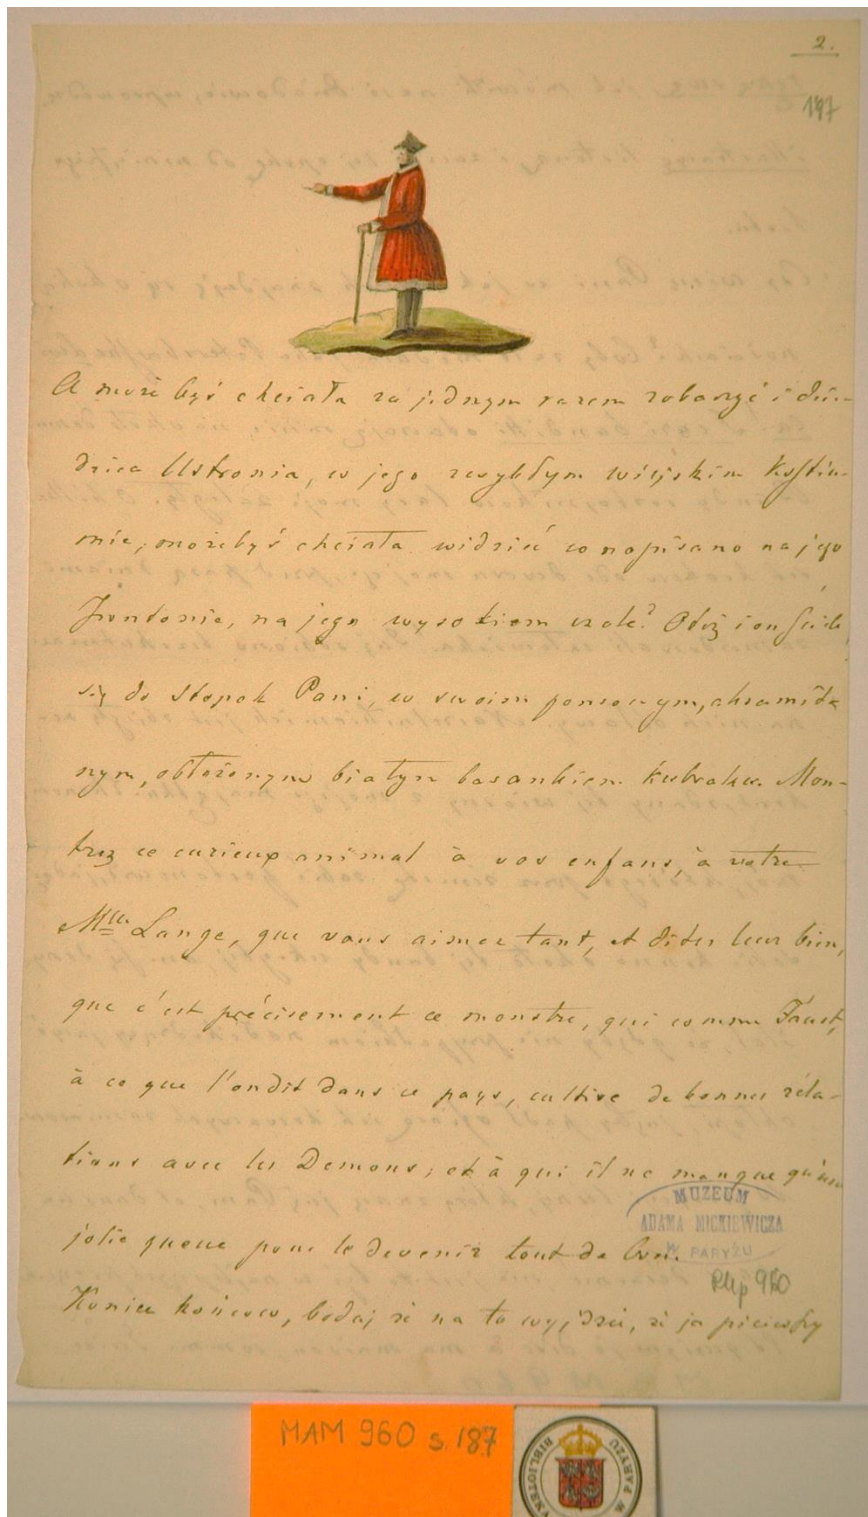 2.
187
A może byś chciała za jednym razem zobaczyć i dzie-
dzica Ustronia, w jego zwykłym wiejskim kostiu-
mie; możebyś chciała widzieć co napisano na jego
frontonie, na jego wysokiem czole? Otóż i on ściele
się do stopek Pani, w swoim ponsowym, axamit-
nym, obłożonym białym barankiem kubraku. Mon-
trez ce curieux animal à vos enfans, à votre
Mlle Lange, que vous aimez tant, et dites leur bien,
que c'est précisement ce monstre, qui comme Faust,
à ce que l'on dit dans ce pays, cultive de bonnes réla-
tions avec les Demons; et à qui il ne manque qu'une
jolie queue pour le devenir tout de bon.
MUZEUM
ADAMA MICKIEWICZA
W PARYŻU
Rkp 960
Koniec końcow, bodaj że na to wyjdzie, że ja pierwszy
MAM 960 s. 187
W PARYŻU